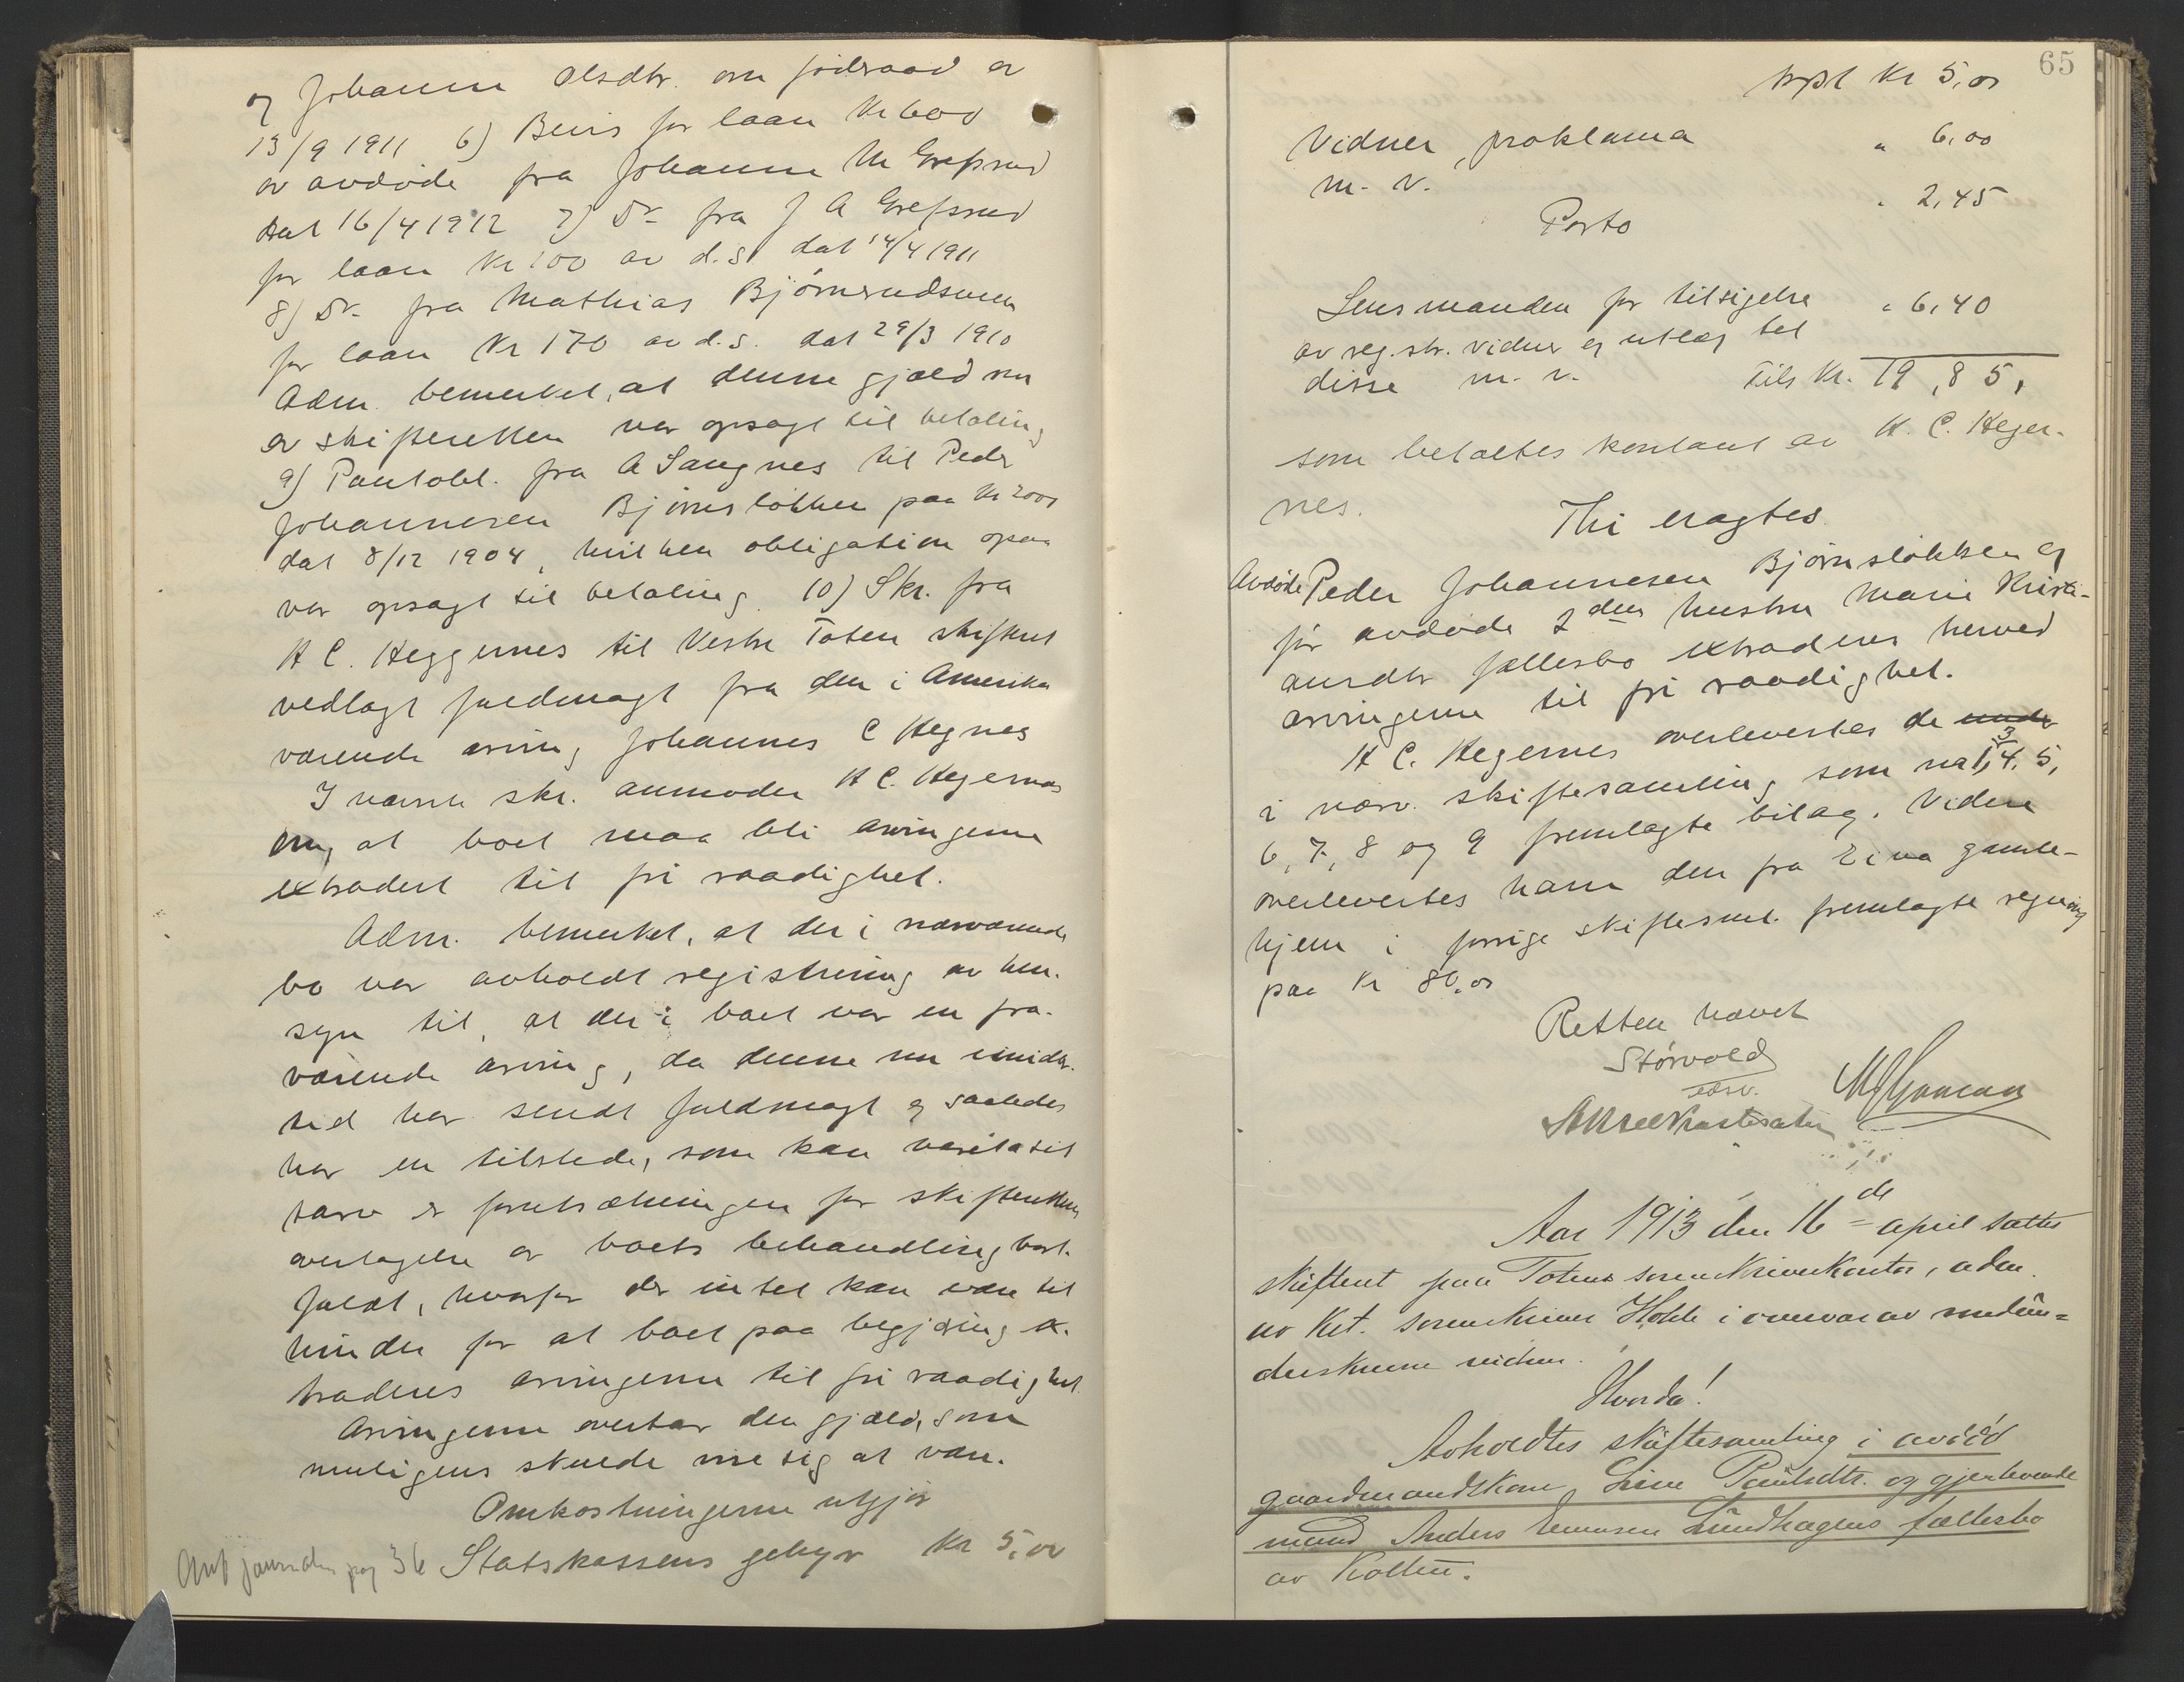 og Johanne Olsdtr. om födraad av
13/9 1911 6) Bevis for laan Kr 600
av avdöde fra Johanne M Grefsrud
dat 16/4 1912 7) Do fra J A Grefsrud
for laan Kr 100 av d.s. dat 14/4 1911
8) Do fra Mathias Björnerudsveen
for laan Kr 170 av d.s. dat 29/3 1910
Adm. bemerket, at denne gjæld nu
av skifteretten var opsagt til betaling
9) Pantobl. fra A Sangnes til Peder
Johannesen Björnsløkken paa Kr 2000
dat 8/12 1904, hvilken obligation ogsaa
var opsagt til betaling. 10) Skr. fra
H C. Heggernes til Vestre Toten skifteret
vedlagt fuldmagt fra den i Amerika
værende arving Johannes C Hegnes
I nævnte skr. anmoder H C. Hegernes
om, at boet maa bli arvingerne
extradert til fri raadighet.
Adm. bemerket, at der i nærværende
bo var avholdt registrering av hen-
syn til, at der i boet var en fra-
værende arving, da denne nu imidler-
tid har sendt fuldmagt og saaledes
har en tilstede, som kan vareta sit
tarv er forutsætningen for skifterettens
overtagelse av boets behandling bort-
faldt, hvorfor der intet kan være til
hinder for at boet paa begjæring ex-
traderes arvingerne til fri raadighet.
Arvingerne overtar den gjæld, som
muligens skulde vise sig at være.
Omkostningerne utgjör
Statskassens gebyr Kr 5,00
Anf journalen pag 36
65
trpt Kr 5,00
Vidner, proklama " 6,00
m. v.
Porto " 2,45
Lensmanden for tilsigelse " 6,40
av reg.str. vidner og utlæg til
disse m. v. Tils Kr. 19,85,
som betaltes kontant av H. C. Heger-
nes.
Thi eragtes
Avdöde Peder Johannesen Björnsløkken og
för avdöde 2den hustru Marie Kristi-
ansdtr fællesbo extraderes herved
arvingerne til fri raadighet.
H C. Hegernes overlevertes de under
i nærv. skiftesamling som nr 1, 3, 4, 5,
6, 7, 8 og 9 fremlagte bilag. Videre
overlevertes ham den fra Eina gamle-
hjem i forrige skiftesml. fremlagte regning
paa Kr 80,00
Retten hævet
Störvold
edsv.
Aar 1913 den 16de april sattes
skifteret paa Totens sorenskriverkontor, adm.
av kst. sorenskriver Holck i overvær av nedün-
derskrevne vidner.
Hvorda!
Avholdtes skiftesamling i avdöd
gaardmandskone Line Paulsdtr. og gjenlevende
mand Anders Evensen Lundhagens fællesbo
av Kolbu.